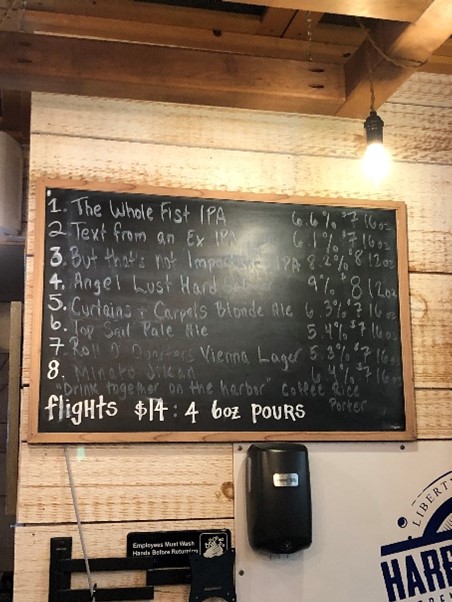 1. The Whole Fist IPA 6.6% $7 16oz
2 Text from an Ex IPA 6.1% $7 16oz
3. But that's not Important IPA 8.2% $8 12oz
4. Angel Lust Hard 9% $8 12oz
5. Curtains & Carpets Blonde Ale 6.3% $7 16oz
6. Top Sail Pale Ale 5.4% $7 16oz
7. Roll O' Quarters Vienna Lager 5.3% $7 16oz
8. Minato Jikan 6.4% $7 16oz
"Drink together on the harbor" Coffee Rice
Porter
flights $14: 4 6oz POURS
Employees Must Wash
Hands Before Returning
LIBERTY
HARB